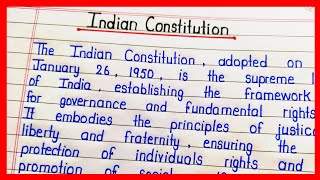 Indian Constitution
The Indian Constitution, adopted on
January 26, 1950, is the supreme
of India, establishing the framework
for governance and fundamental rights
It embodies the principles of justice
liberty and fraternity, ensuring the
protection of individuals rights and
promotion of social